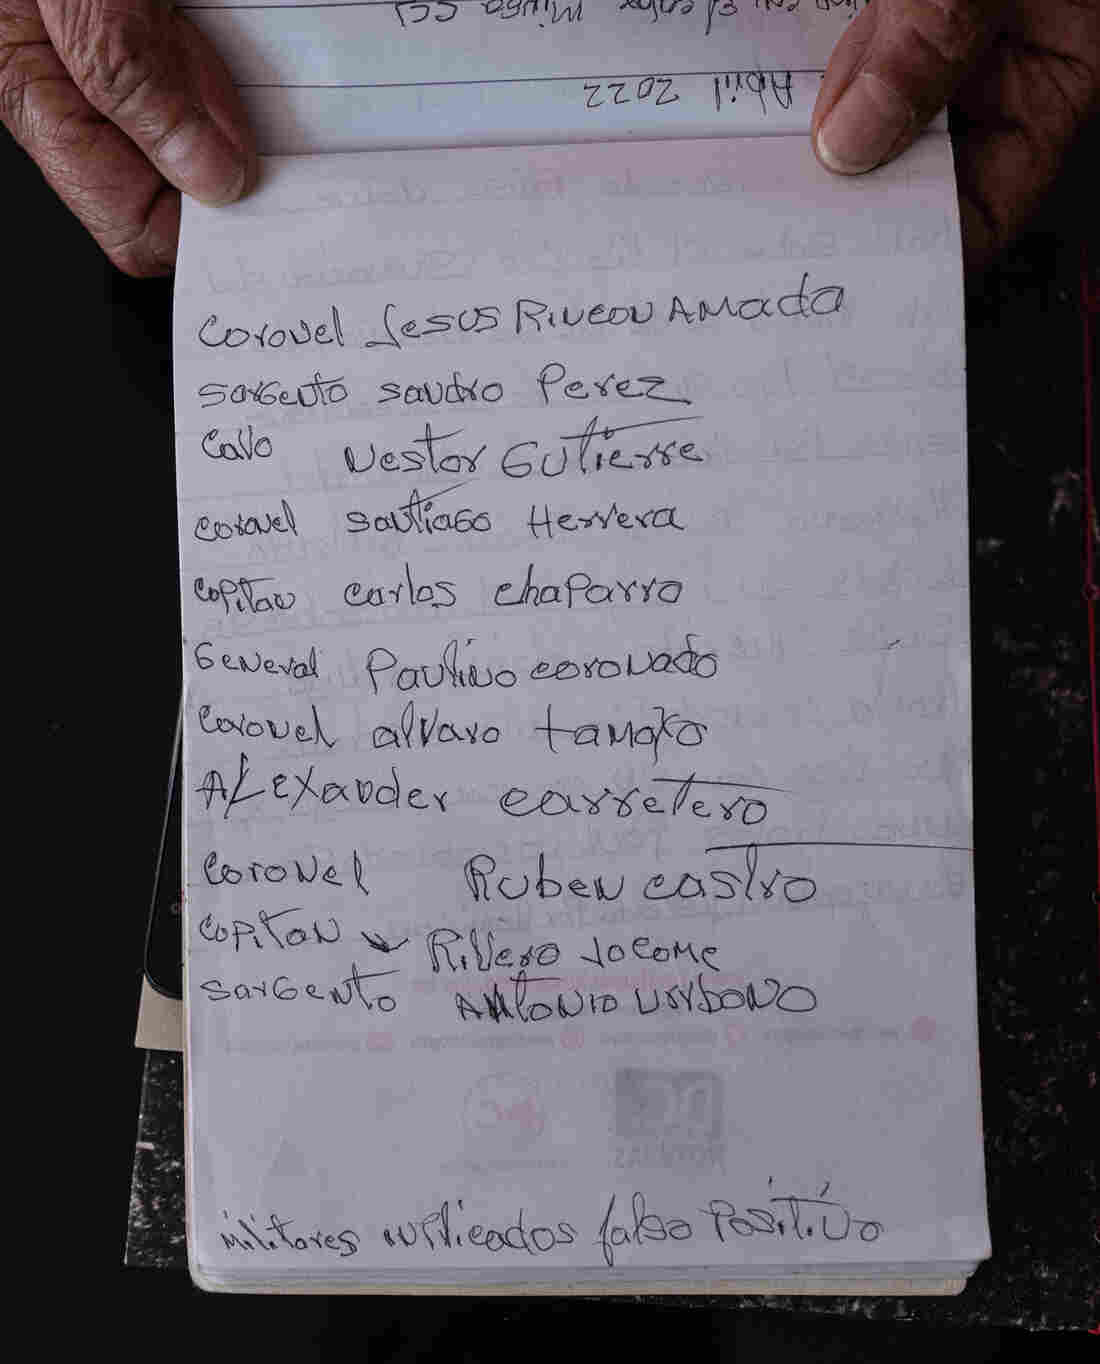 Abril 2022
Coronel Jesus Rincon Amada
Sargento Sandro Perez
Cavo Nestor Gutierre
Coronel Santiago Herrera
Copitan Carlos Chaparro
General Paulino Coronado
Coronel Alvaro Tamayo
Alexander Carretero
Coronel Ruben Castro
Copitan Rivero Jocome
Sargento Antonio Urbono
Militares inplicados falso positivo